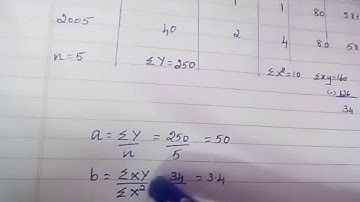 1 1 80
2005 40 2 4 80 58
n=5 ΣY=250 Σx²=10 Σxy=160
(-) 126
34
a = ΣY/n = 250/5 = 50
b = ΣXY/ΣX² 34 = 3.4